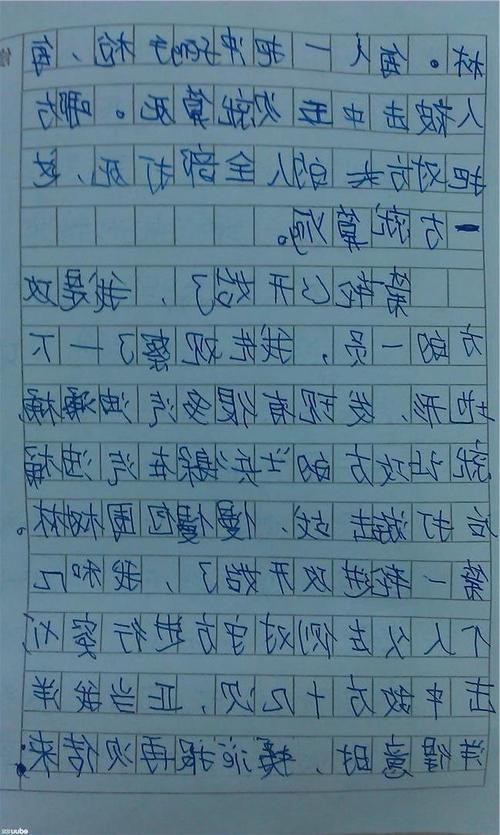 林。每人一把冲锋手枪，每
人被击中五次就算死。哪方
把对方的人全部打死，这
一方就算赢。
第轮已开始了，我是攻
方的一员，我先观察了一下
地形，发现有很多汽油桶
就让攻方的士兵躲在汽油桶
后打游击战，慢慢包围树林。
第一轮进攻开始了，我和几
个人从左侧对守方进行突
击中敌方十几次，正当我洋
洋得意时，报再次传来
uube